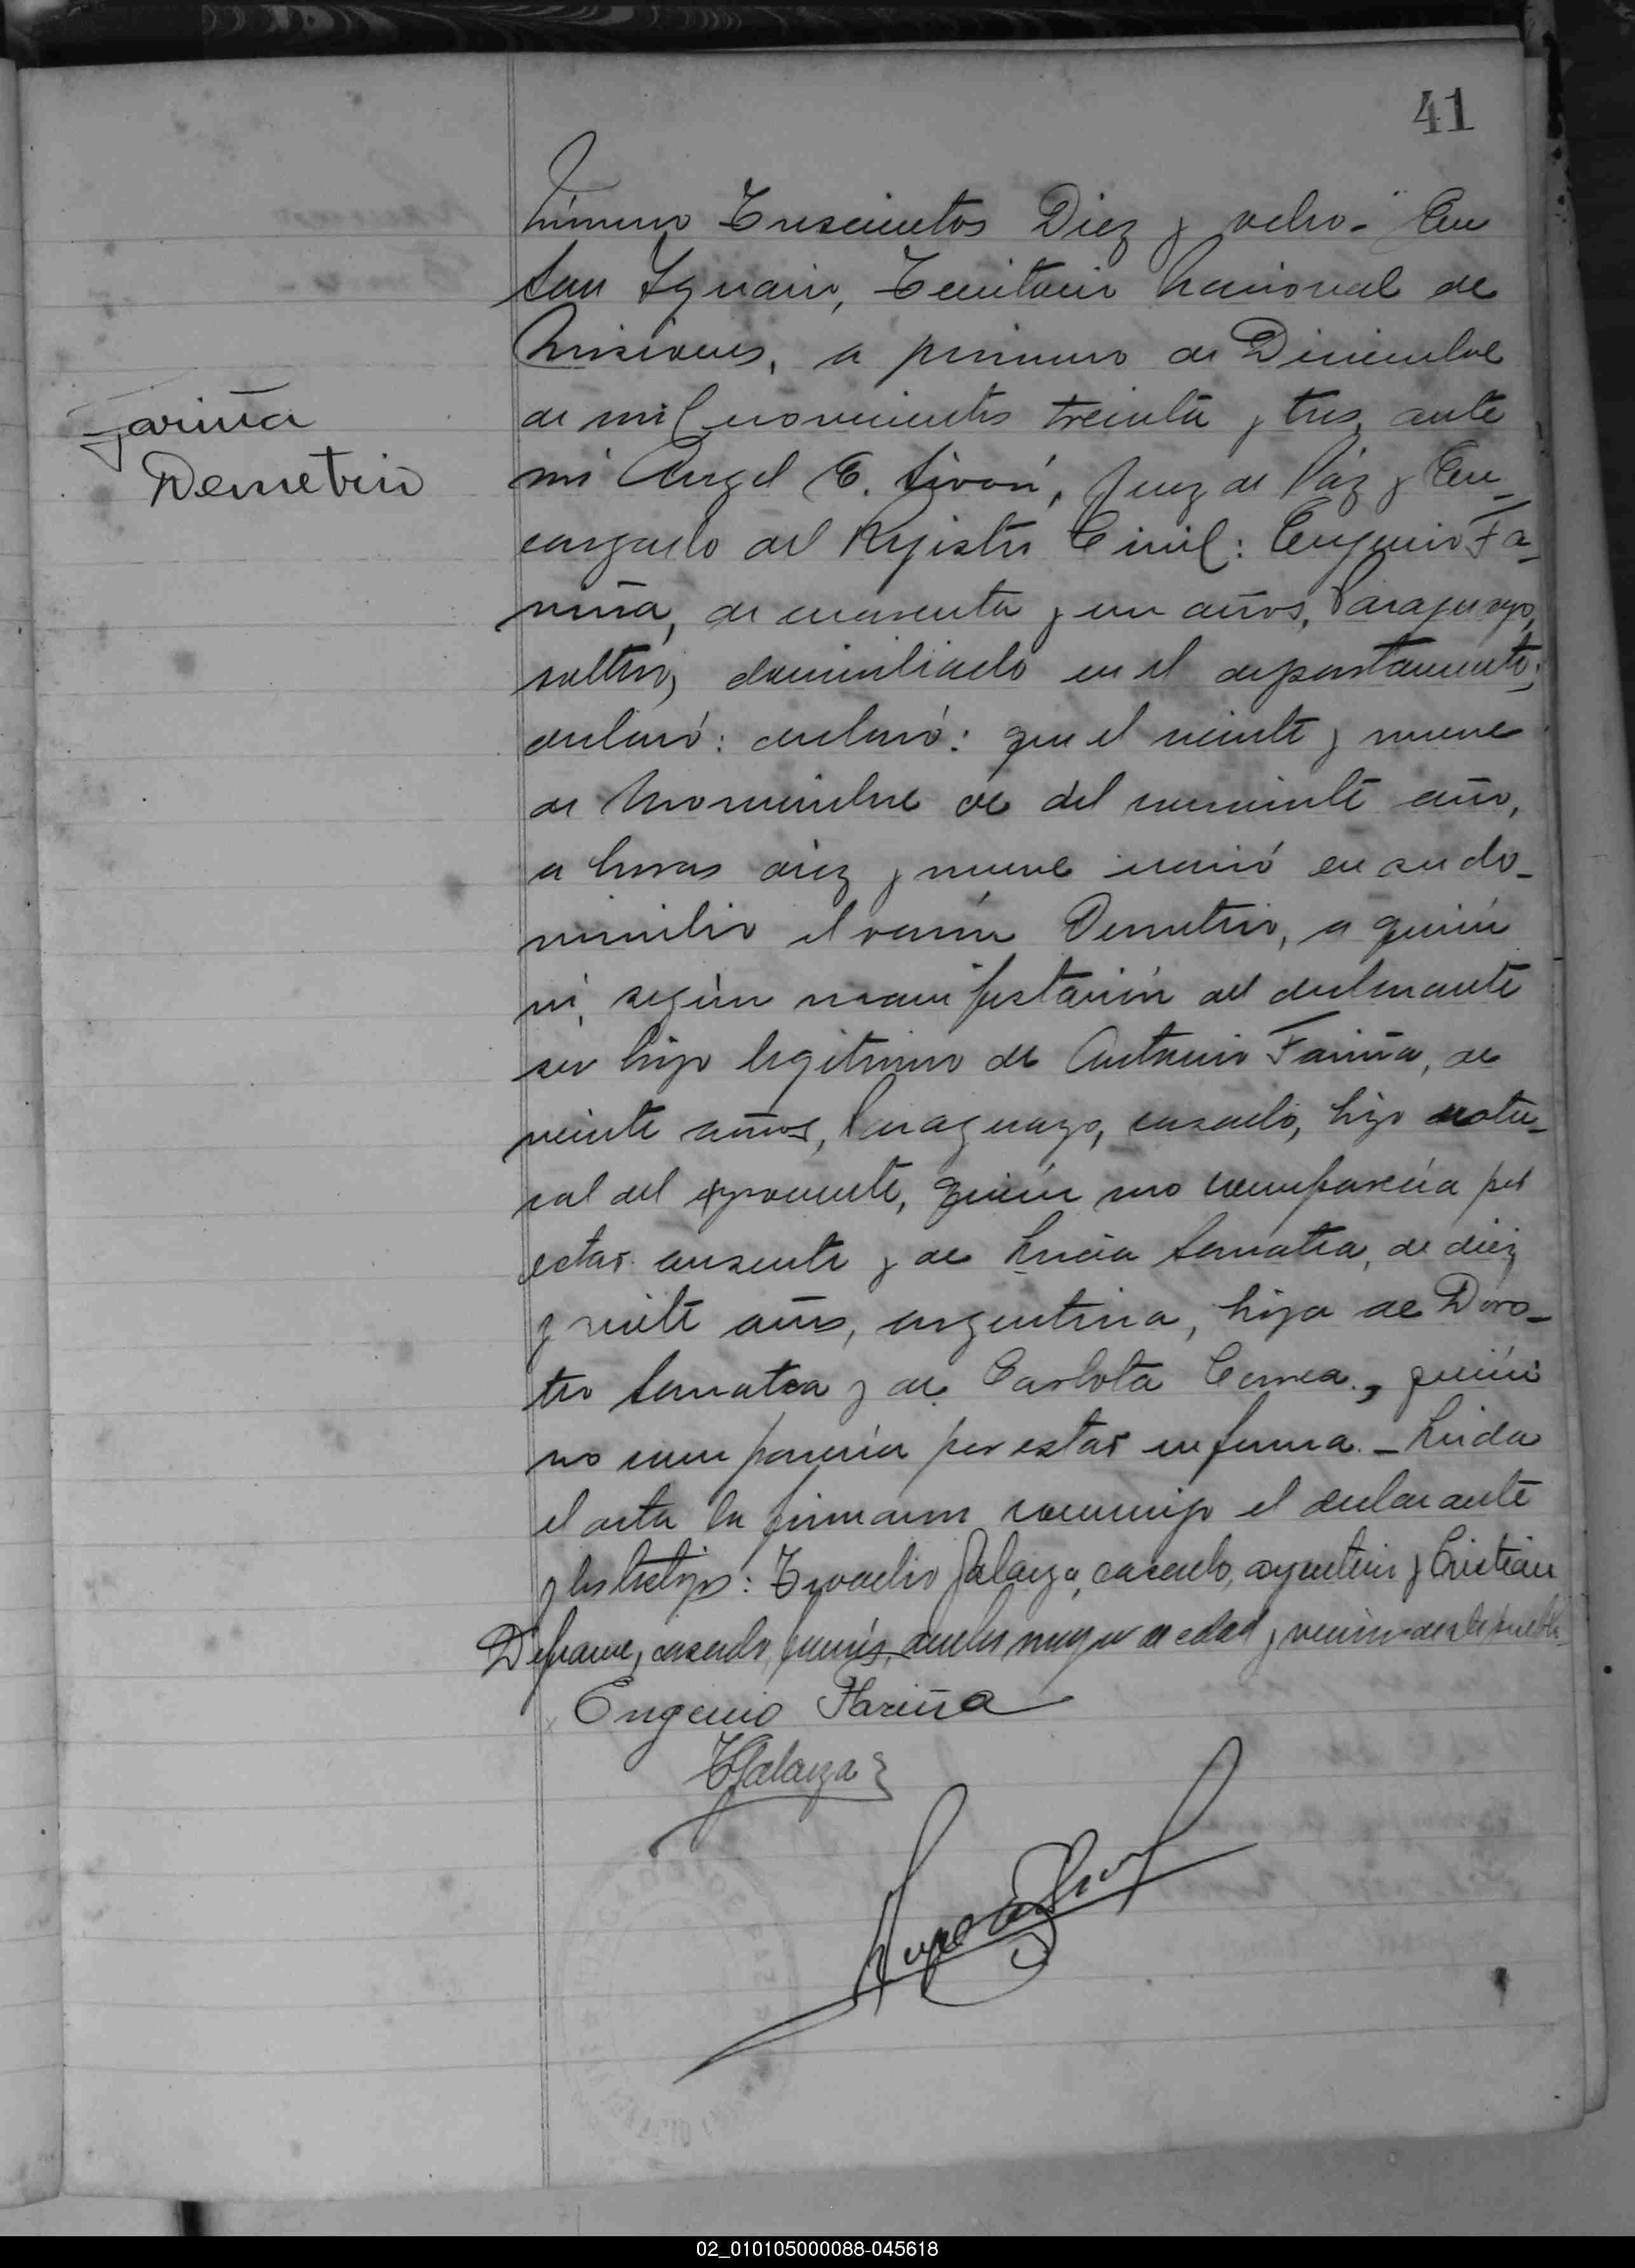 41
Número Trescientos Diez y ocho.- En
San Ignacio, Territorio Nacional de
Misiones, a primero de Diciembre
de mil novecientos treinta y tres, ante
mi Angel E. Sivori, Juez de Páz y En-
cargado del Registro Civil: Eugenio Fa-
riña, de cuarenta y un años, Paraguayo,
soltero, domiciliado en el departamento;
declaró: declaró: que el veinte y nueve
de Noviembre de del corriente año,
a horas diez y nueve nació en su do-
micilio el varón Demetrio, a quién
ví, según manifestación del declarante
ser hijo legitimo de Antonio Fariña, de
veinte años, Paraguayo, casado, hijo natu-
ral del exponente, quién no comparecía por
estar ausente y de Lucia, de diez
y siete años, argentina, hija de Doro-
teo y de Carlota Correa, quién
no comparecía por estar enferma.- Leida
el acta la firmaron conmigo el declarante
y los testigos: Galarza, casado, argentino y Cristian
casado, ambos mayor de edad y vecinos de este pueblo.
Fariña
Demetrio
Eugenio Fariña
Galarza
02_010105000088-045618